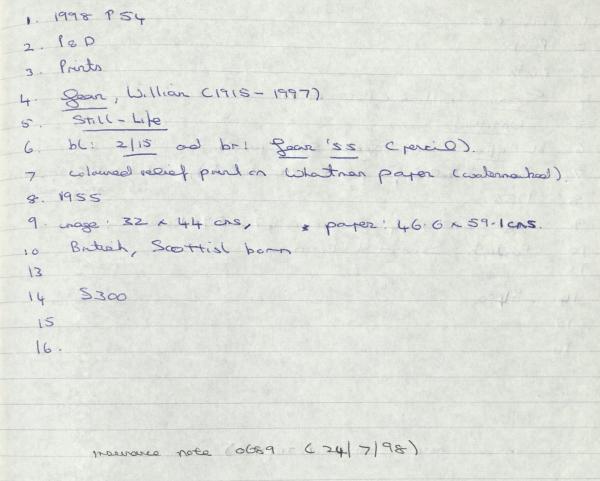 1. 1998 P54
2. P&D
3. Prints
4. Gear, William (1915-1997)
5. Still-Life
6. bl: 2/15 ad br: Gear '55 (pencil).
7 coloured relief print on Whatman paper (watermarked).
8. 1955
9. image: 32 x 44 cms, * paper: 46.6 x 59.1 cms.
10 British, Scottish born
13
14 S300
15
16.
insurance note 0689 (24/7/98)